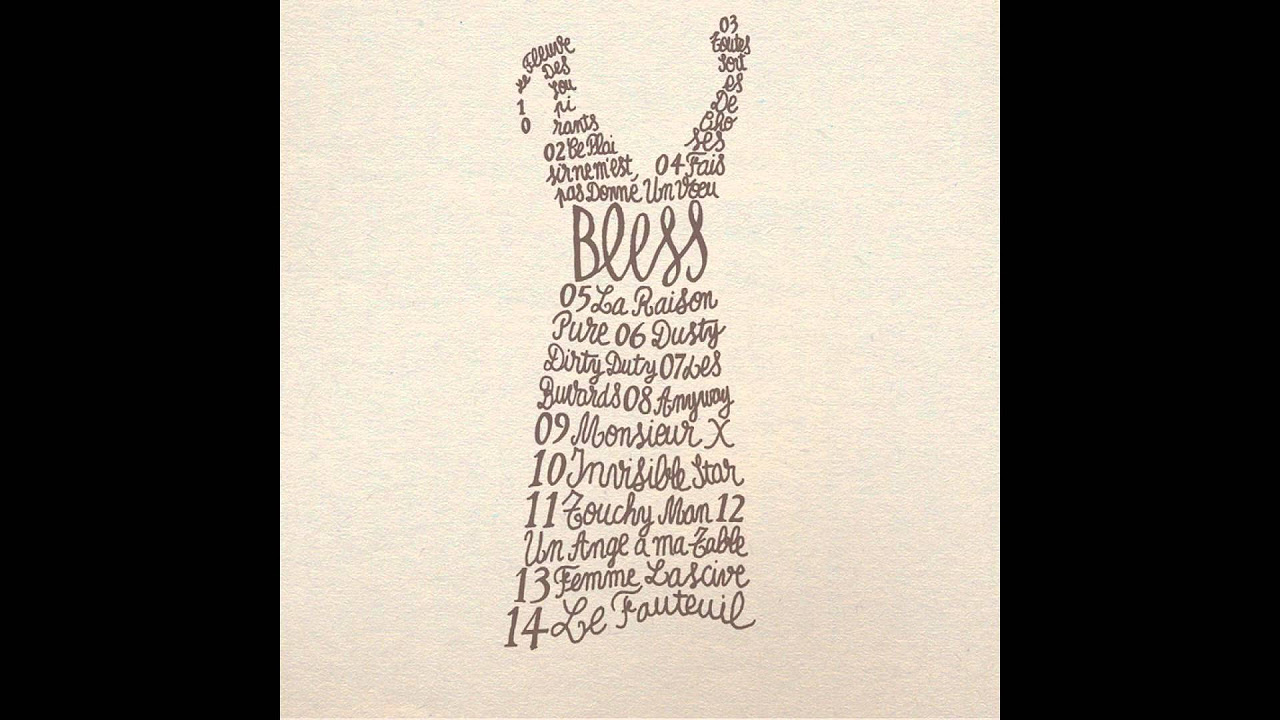 0
1
Le
Fleuve
Des
Sou
pi
rants
02 Le Plai
sir ne m'est
pas Donné
03
Toutes
Sort
es
De
Cho
ses
04 Fais
Un Vœu
Bless
05 La Raison
Pure 06 Dusty
Dirty Duty 07 Les
Buvards 08 Anyway
09 Monsieur X
10 Invisible Star
11 Touchy Man 12
Un Ange à ma Table
13 Femme Lascive
14 Le Fauteuil